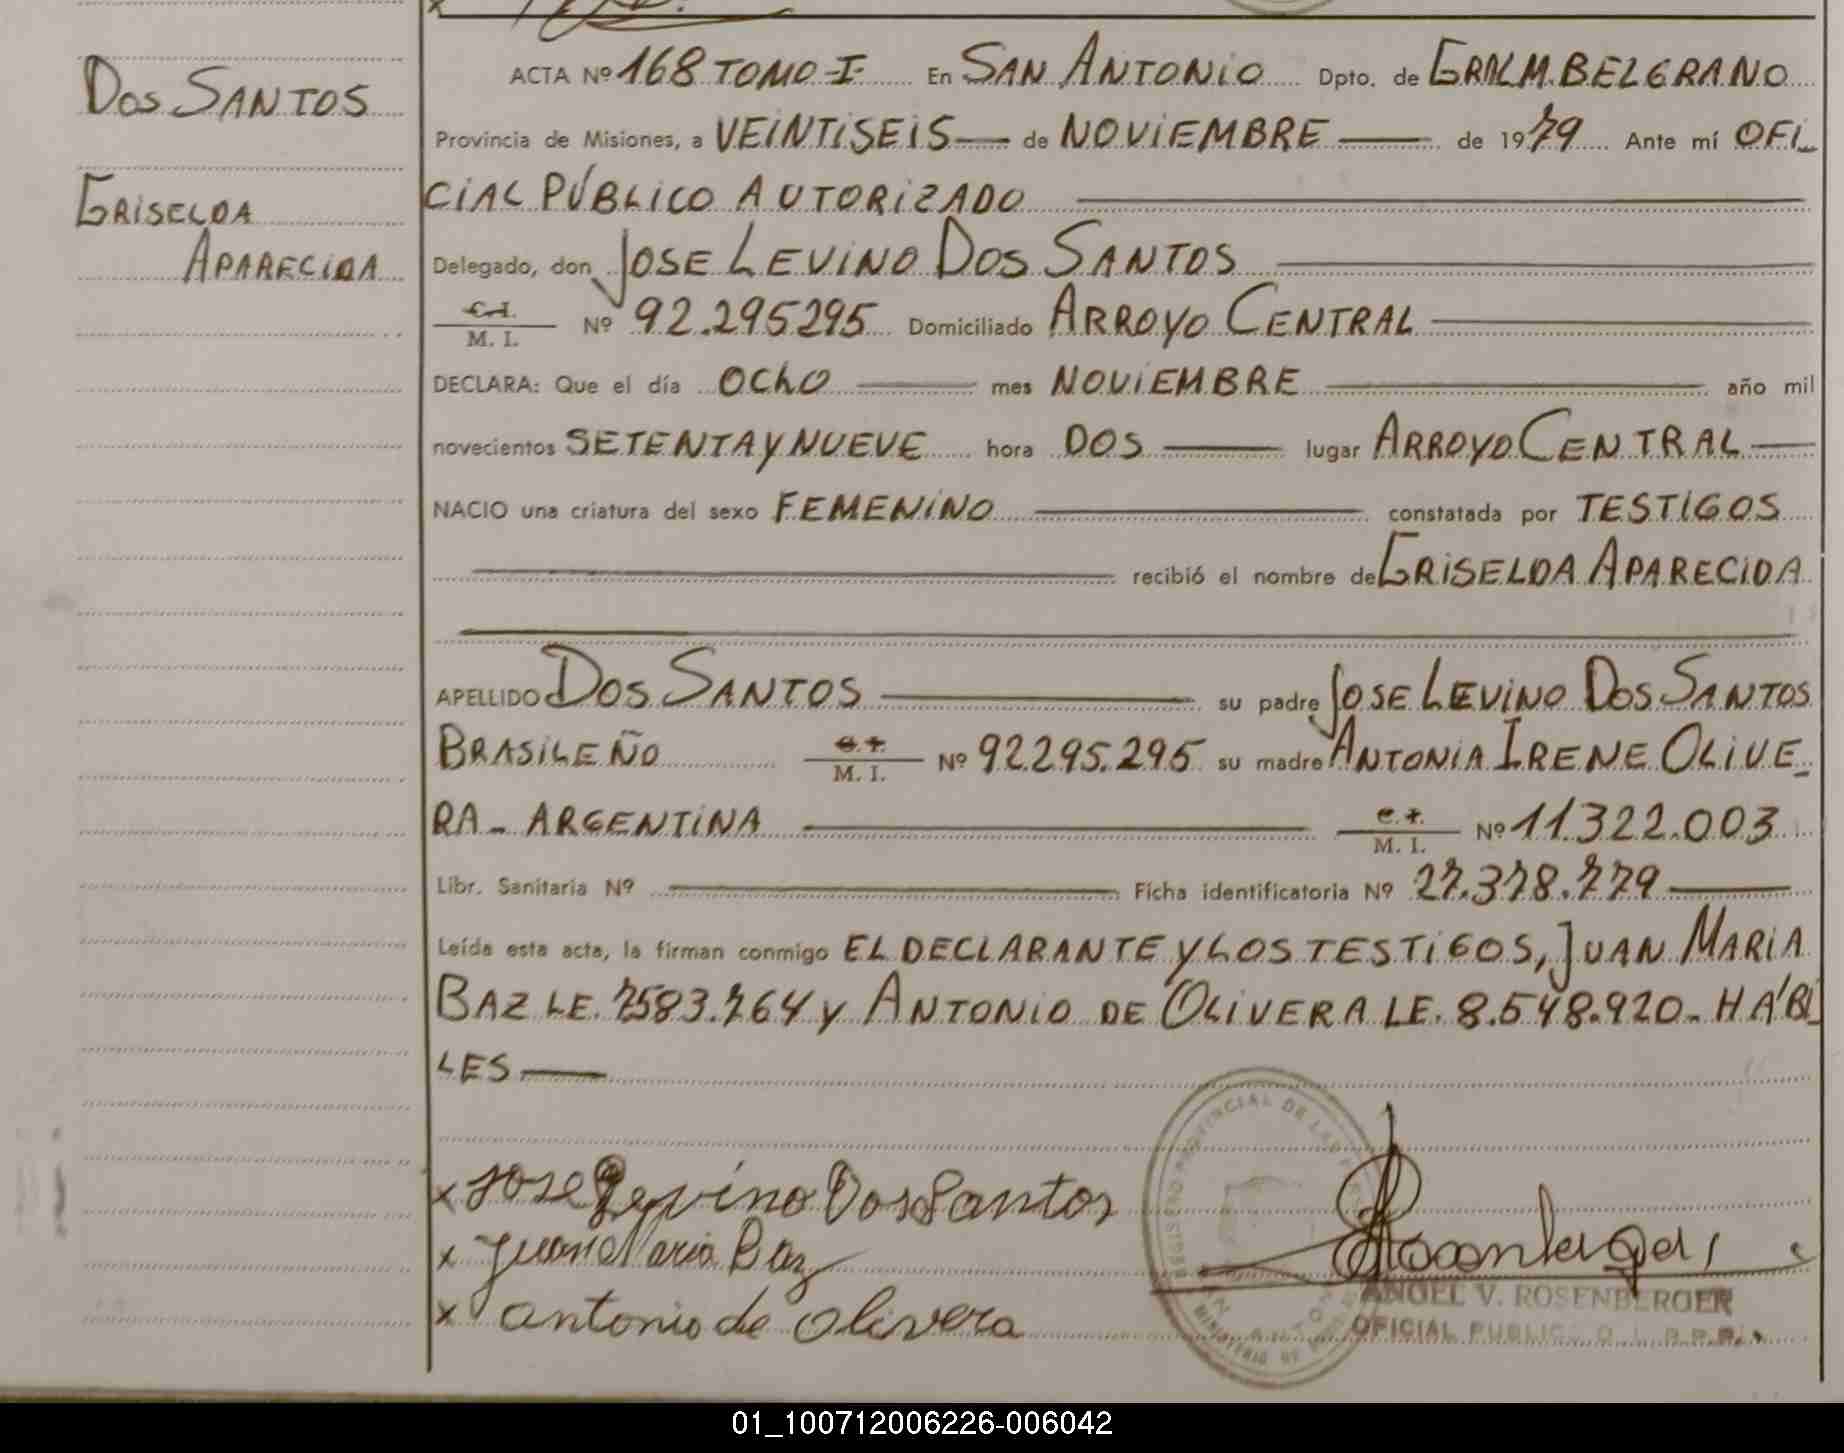 Dos SANTOS
GRISELDA
APARECIDA
ACTA Nº 168 TOMO I En SAN ANTONIO Dpto. de GRAL M. BELGRANO
Provincia de Misiones, a VEINTISEIS de NOVIEMBRE de 1979 Ante mí OFI
CIAL PÚBLICO AUTORIZADO
Delegado, don JOSE LEVINO DOS SANTOS
C.I.
M. I. Nº 92.295295 Domiciliado ARROYO CENTRAL
DECLARA: Que el día OCHO mes NOVIEMBRE año mil
novecientos SETENTA Y NUEVE hora DOS lugar ARROYO CENTRAL
NACIO una criatura del sexo FEMENINO constatada por TESTIGOS
recibió el nombre de GRISELDA APARECIDA
APELLIDO DOS SANTOS su padre JOSE LEVINO DOS SANTOS
BRASILEÑO C.I. M. I. Nº 92.295.295 su madre ANTONIA IRENE OLIVE-
RA - ARGENTINA C.I. M. I. Nº 11.322.003
Libr. Sanitaria Nº Ficha identificatoria Nº 27.378.779
Leída esta acta, la firman conmigo EL DECLARANTE Y LOS TESTIGOS, JUAN MARIA
BAZ LE. 7583.764 y ANTONIO DE OLIVERA LE. 8.548.920. HÁBI
LES
x Jose Levino Dos Santos
x Juan Maria Baz
x antonio de olivera
REGISTRO PROVINCIAL DE LAS
MINISTERIO DE
Rosenberger
ANGEL V. ROSENBERGER
OFICIAL PUBLIC
01_100712006226-006042